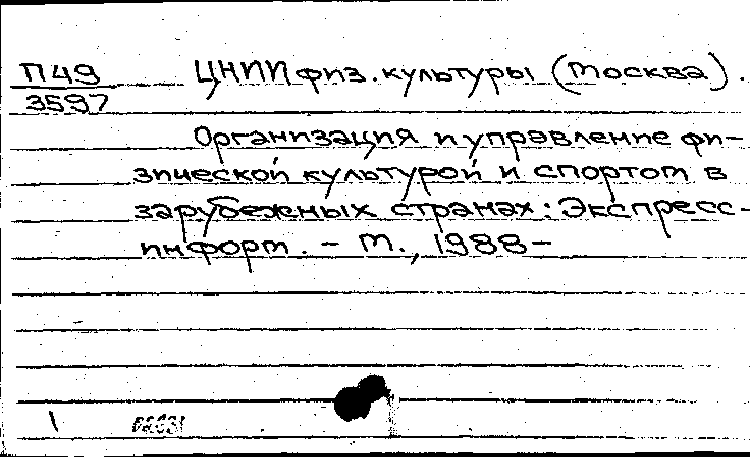 П49 ЦНИИ физ. культуры (Москва).
3597
Организация и управление фи-
зической культурой и спортом в
зарубежных странах: Экспресс-
информ. - М., 1988-